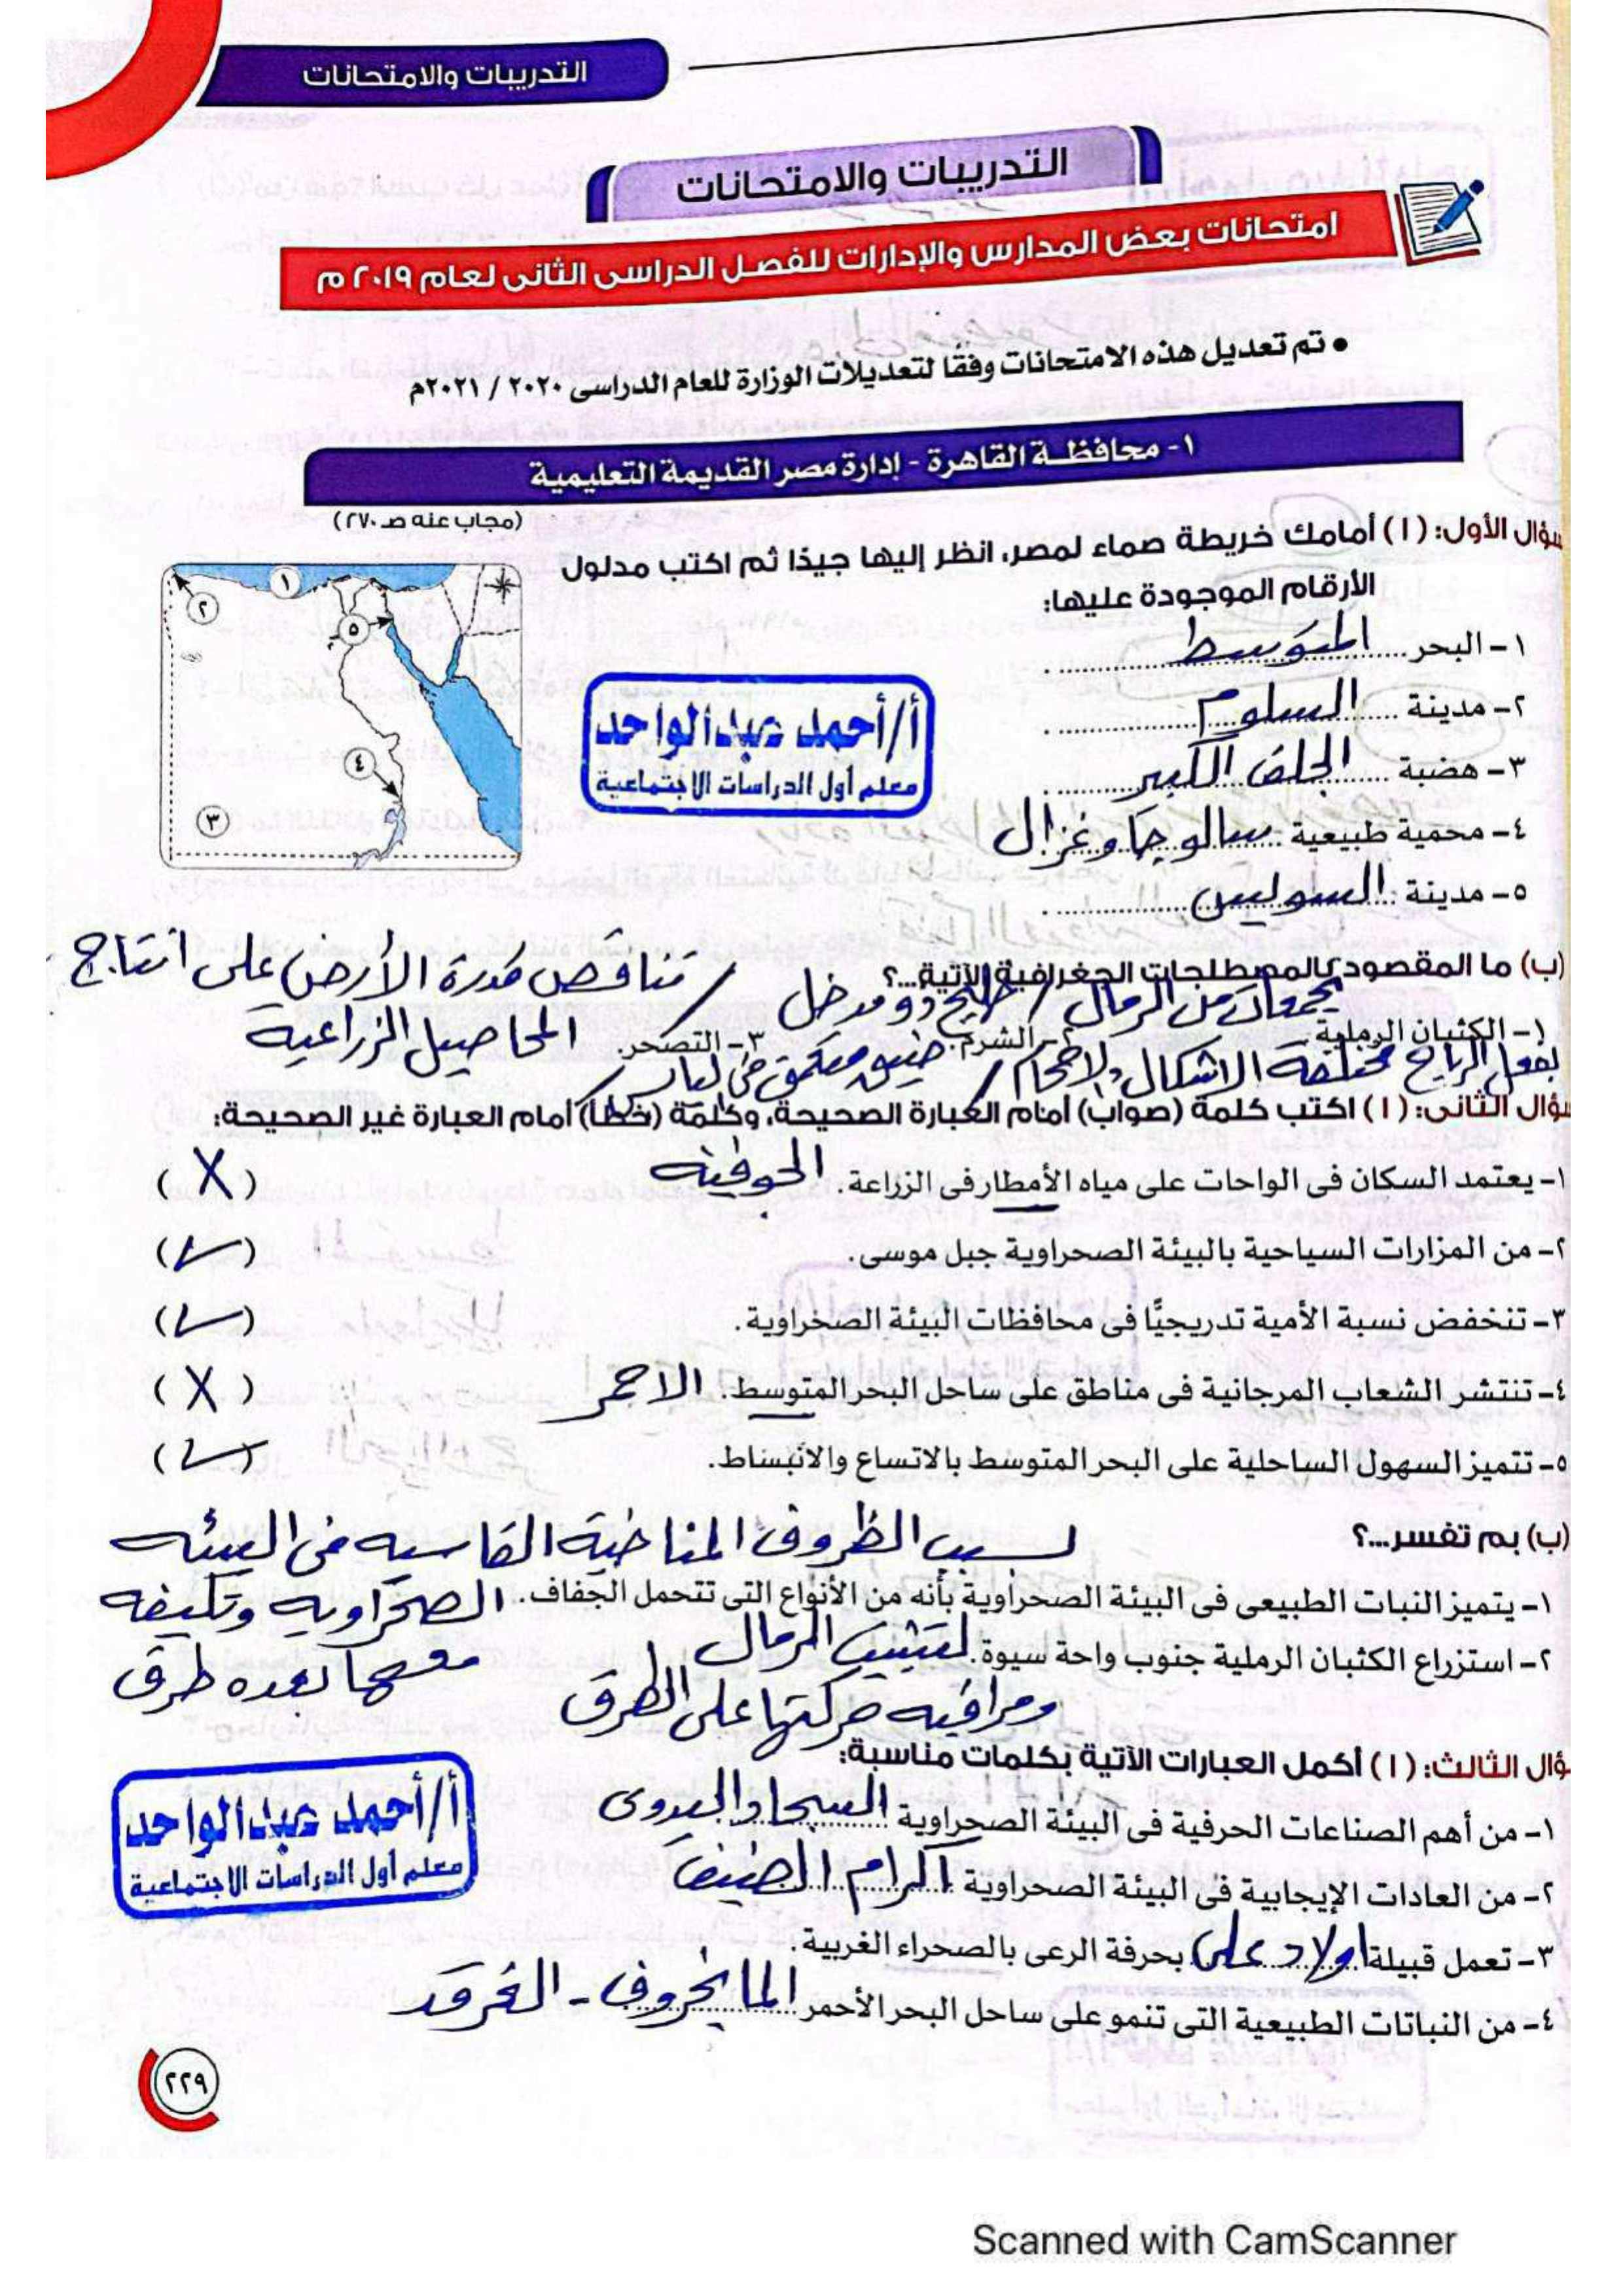 التدريبات والامتحانات
التدريبات والامتحانات
امتحانات بعض المدارس والإدارات للفصل الدراسى الثانى لعام ٢٠١٩ م
• تم تعديل هذه الامتحانات وفقًا لتعديلات الوزارة للعام الدراسى ٢٠٢٠ / ٢٠٢١م
١- محافظة القاهرة - إدارة مصر القديمة التعليمية
(مجاب عنه صـ ٢٧٠)
سؤال الأول: (ا) أمامك خريطة صماء لمصر، انظر إليها جيدًا ثم اكتب مدلول
الأرقام الموجودة عليها:
١ ٢ ٣ ٤ ٥
١- البحر المتوسط
٢- مدينة السلوم
٣- هضبة الجلف الكبير
٤- محمية طبيعية سالوجا وغزال
٥- مدينة السويس
أ/أحمد عبدالواحد
معلم أول الدراسات الاجتماعية
(ب) ما المقصود بالمصطلحات الجغرافية الآتية...؟
تجمعات من الرمال / خليج ذو مدخل / تناقص قدرة الأرض على انتاج
١- الكثبان الرملية. ٢- الشرم. ٣- التصحر. المحاصيل الزراعية
بفعل الرياح مختلفة الاشكال والاحجام / ضيق متعمق فى اليابس /
سؤال الثانى: (ا) اكتب كلمة (صواب) أمام العبارة الصحيحة، وكلمة (خطأ) أمام العبارة غير الصحيحة:
١- يعتمد السكان فى الواحات على مياه الأمطار فى الزراعة. الجوفية (X)
٢- من المزارات السياحية بالبيئة الصحراوية جبل موسى. (✓)
٣- تنخفض نسبة الأمية تدريجيًّا فى محافظات البيئة الصحراوية. (✓)
٤- تنتشر الشعاب المرجانية فى مناطق على ساحل البحر المتوسط. الاحمر (X)
٥- تتميز السهول الساحلية على البحر المتوسط بالاتساع والانبساط. (✓)
(ب) بم تفسر...؟ بسبب الظروف المناخية القاسيه فى البيئه
١- يتميز النبات الطبيعى فى البيئة الصحراوية بأنه من الأنواع التى تتحمل الجفاف. الصحراويه وتكيفه
٢- استزراع الكثبان الرملية جنوب واحة سيوة. لتثبيت الرمال معها بعده طرق
ومراقبه حركتها على الطرق
سؤال الثالث: (ا) أكمل العبارات الآتية بكلمات مناسبة:
١- من أهم الصناعات الحرفية فى البيئة الصحراوية السجاد اليدوى
٢- من العادات الإيجابية فى البيئة الصحراوية اكرام الضيف
٣- تعمل قبيلة اولاد على بحرفة الرعى بالصحراء الغربية.
٤- من النباتات الطبيعية التى تنمو على ساحل البحر الأحمر المانجروف - الغرقد
أ/أحمد عبدالواحد
معلم أول الدراسات الاجتماعية
٢٢٩
Scanned with CamScanner